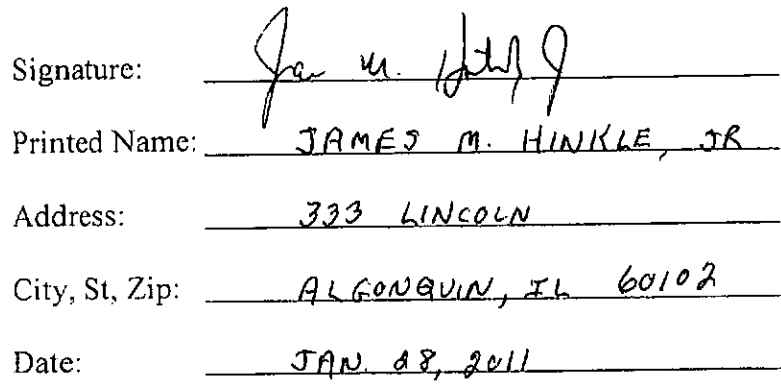 Signature: Jam M.
Printed Name: JAMES M. HINKLE, JR
Address: 333 LINCOLN
City, St, Zip: ALGONQUIN, IL 60102
Date: JAN. 28, 2011